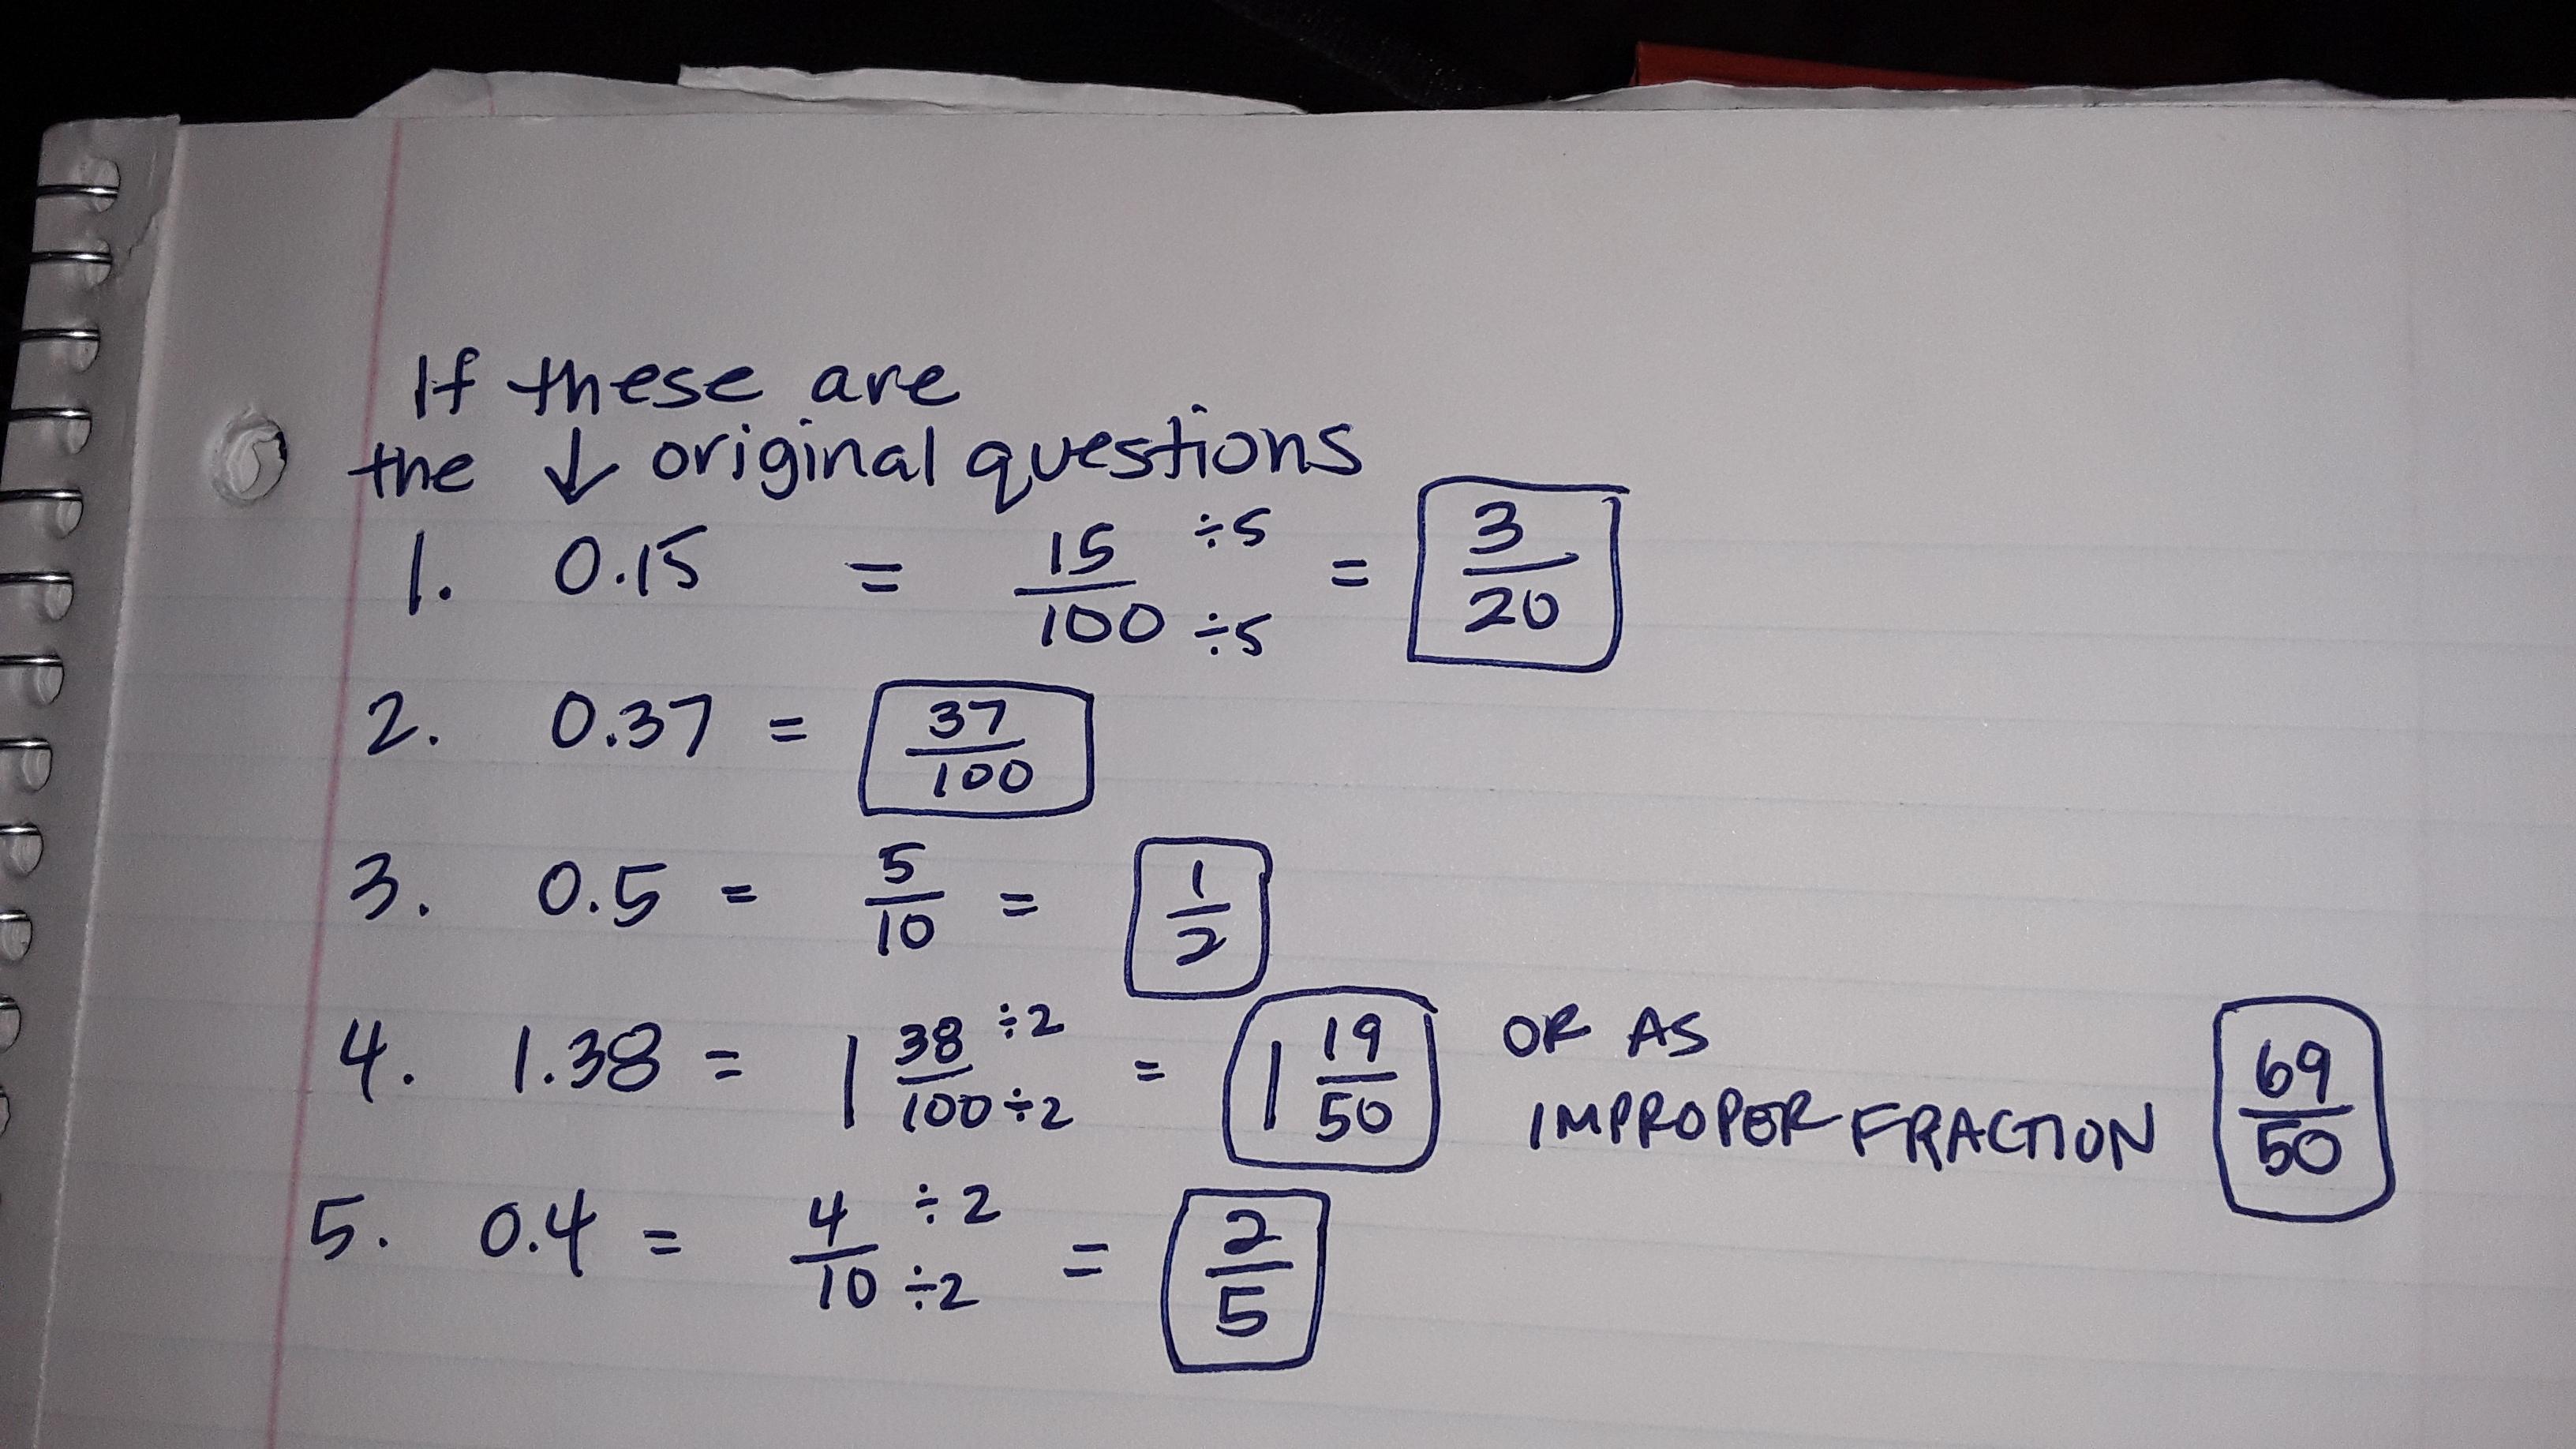 If these are
the ↓ original questions
1. 0.15 = 15/100 ÷5 ÷5 = 3/20
2. 0.37 = 37/100
3. 0.5 = 5/10 = 1/2
4. 1.38 = 1 38/100 ÷2 ÷2 = 1 19/50 OR AS IMPROPER FRACTION 69/50
5. 0.4 = 4/10 ÷2 ÷2 = 2/5